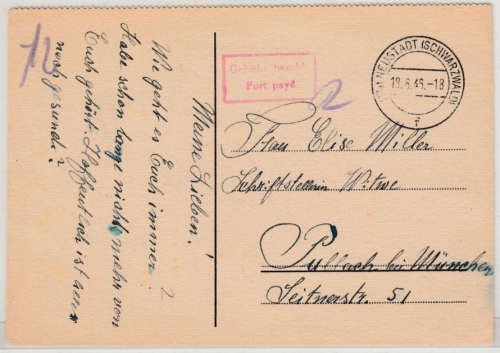 12
Meine Lieben!
Wie geht es Euch immer?
Habe schon lange nicht mehr von
Euch gehört. Hoffentlich ist alles
noch gesund?
Gebühr bezahlt
Port payé
NEUSTADT (SCHWARZWALD)
19.6.46.-18
f
Frau Elise Miller
Schriftstellerin Witwe
Pullach bei München
Seitnerstr. 51